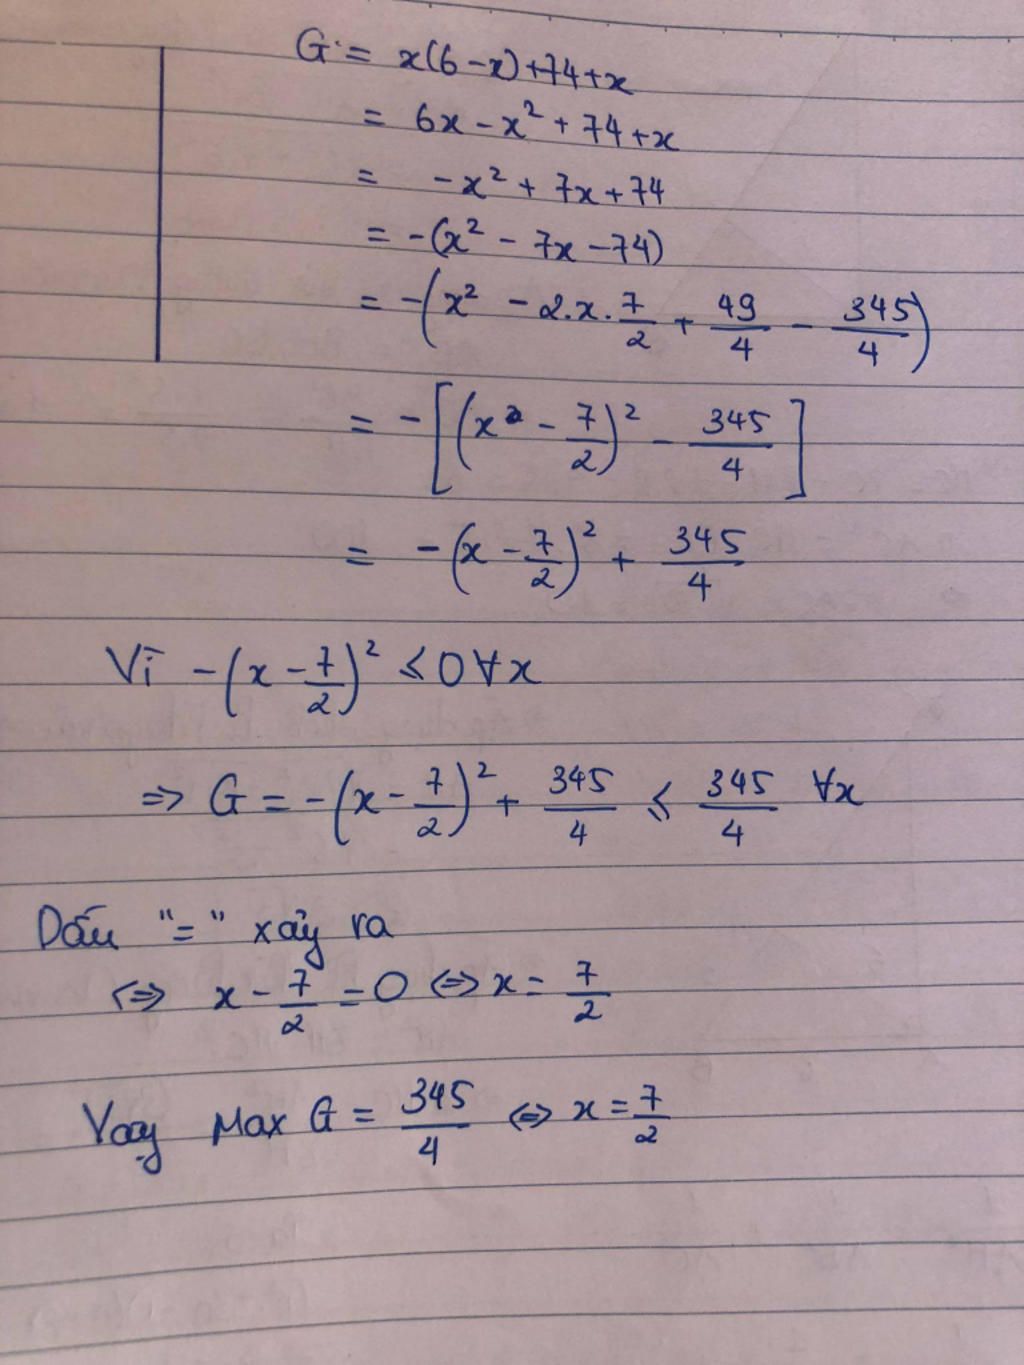 G = x(6-x)+74+x
= 6x - x² + 74 + x
= -x² + 7x + 74
= -(x² - 7x - 74)
= -(x² - 2.x.7/2 + 49/4 - 345/4)
= -[(x² - 7/2)² - 345/4]
= -(x - 7/2)² + 345/4
Vì -(x - 7/2)² ≤ 0 ∀x
=> G = -(x - 7/2)² + 345/4 ≤ 345/4 ∀x
Dấu "=" xảy ra
<=> x - 7/2 = 0 <=> x = 7/2
Vậy Max G = 345/4 <=> x = 7/2